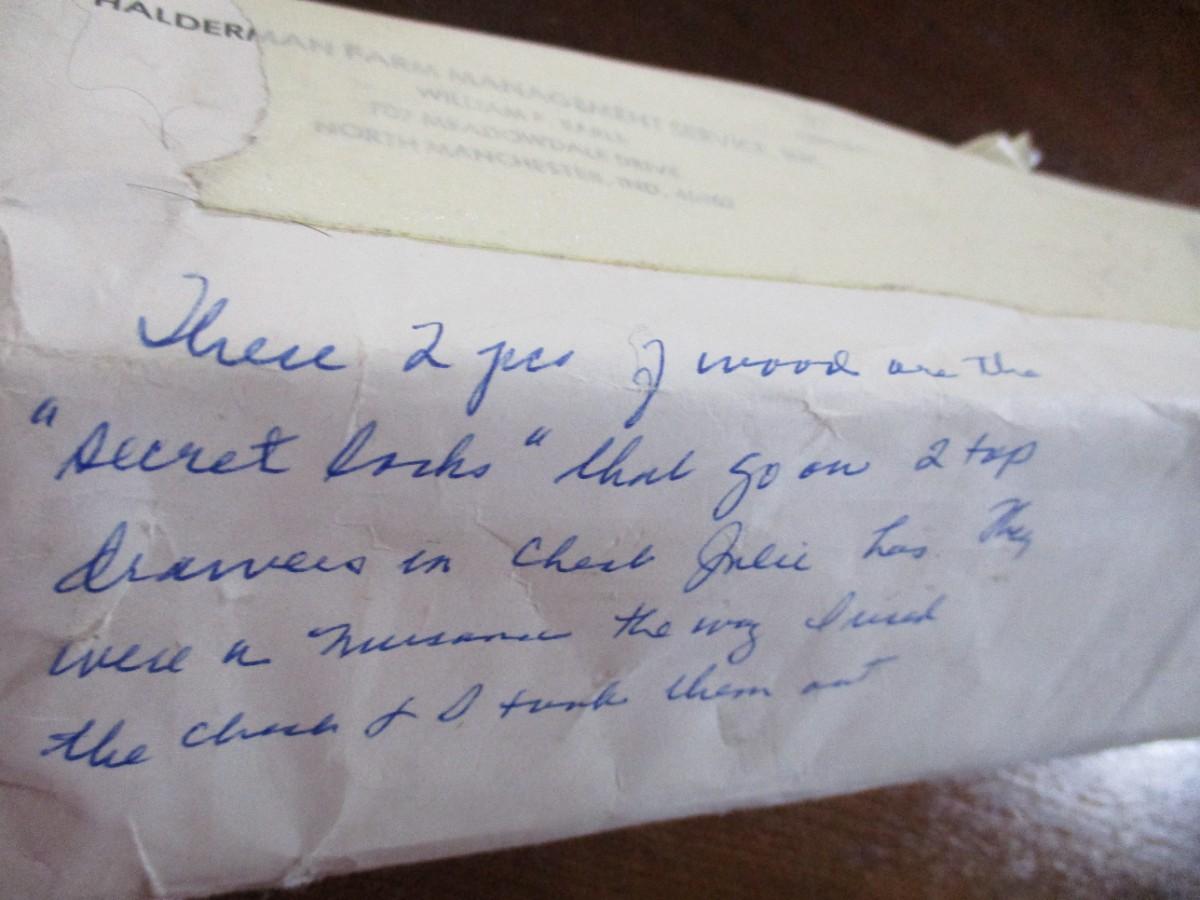 HALDERMAN FARM MANAGEMENT SERVICE, INC.
WILLIAM F. EARLE
707 MEADOWDALE DRIVE
NORTH MANCHESTER, IND. 46962
These 2 pcs of wood are the
"secret locks" that go on 2 top
drawers in chest Julie has They
were a nuisance the way I used
the chest & I took them out